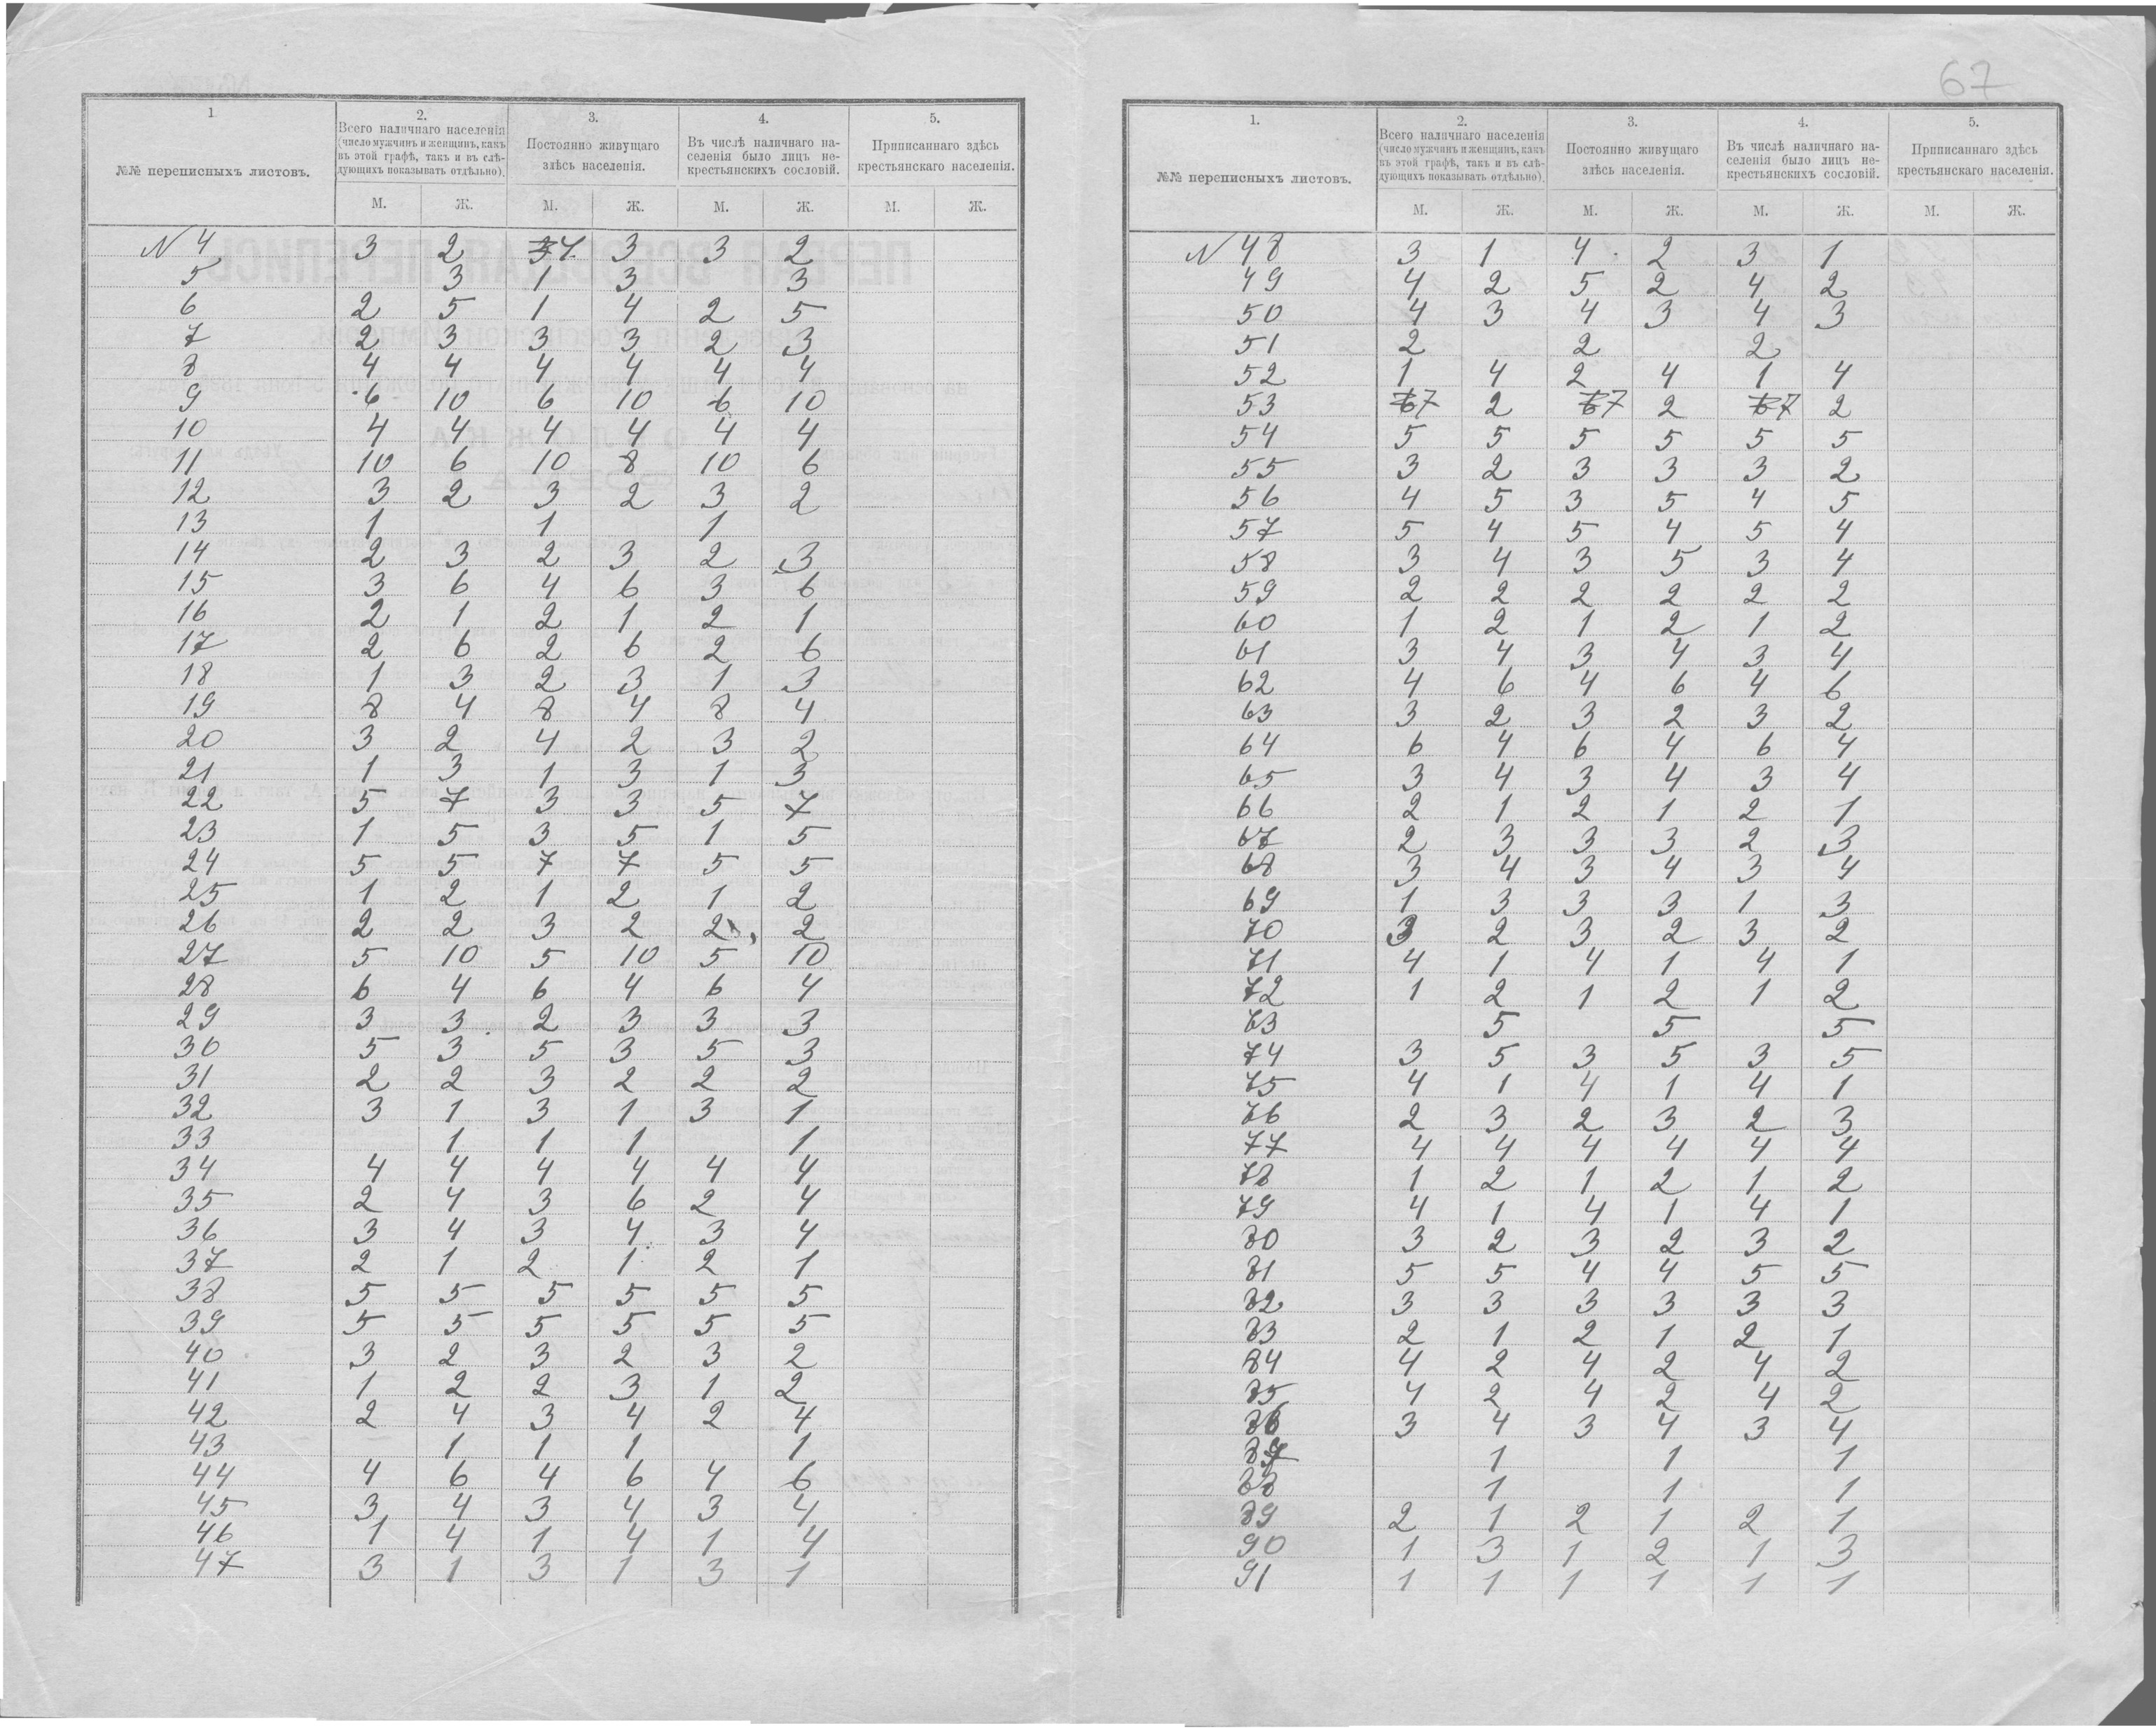 67
1
2.
3.
4.
5.
№№ переписныхъ листовъ.
Всего наличнаго населенія
(число мужчинъ и женщинъ, какъ
въ этой графѣ, такъ и въ слѣ-
дующихъ показывать отдѣльно).
Постоянно живущаго
здѣсь населенія.
Въ числѣ наличнаго на-
селенія было лицъ не-
крестьянскихъ сословій.
Приписаннаго здѣсь
крестьянскаго населенія.
М. Ж. М. Ж. М. Ж. М. Ж.
N 4 3 2 4 3 3 2
5 3 1 3 3
6 2 5 1 4 2 5
7 2 3 3 3 2 3
8 4 4 4 4 4 4
9 6 10 6 10 6 10
10 4 4 4 4 4 4
11 10 6 10 8 10 6
12 3 2 3 2 3 2
13 1 1 1
14 2 3 2 3 2 3
15 3 6 4 6 3 6
16 2 1 2 1 2 1
17 2 6 2 6 2 6
18 1 3 2 3 1 3
19 8 4 8 4 8 4
20 3 2 4 2 3 2
21 1 3 1 3 1 3
22 5 7 3 3 5 7
23 1 5 3 5 1 5
24 5 5 7 7 5 5
25 1 2 1 2 1 2
26 2 2 3 2 2 2
27 5 10 5 10 5 10
28 6 4 6 4 6 4
29 3 3 2 3 3 3
30 5 3 5 3 5 3
31 2 2 3 2 2 2
32 3 1 3 1 3 1
33 1 1 1 1
34 4 4 4 4 4 4
35 2 4 3 6 2 4
36 3 4 3 4 3 4
37 2 1 2 1 2 1
38 5 5 5 5 5 5
39 5 5 5 5 5 5
40 3 2 3 2 3 2
41 1 2 2 3 1 2
42 2 4 3 4 2 4
43 1 1 1 1
44 4 6 4 6 4 6
45 3 4 3 4 3 4
46 1 4 1 4 1 4
47 3 1 3 1 3 1
1.
2.
3.
4.
5.
№№ переписныхъ листовъ.
Всего наличнаго населенія
(число мужчинъ и женщинъ, какъ
въ этой графѣ, такъ и въ слѣ-
дующихъ показывать отдѣльно).
Постоянно живущаго
здѣсь населенія.
Въ числѣ наличнаго на-
селенія было лицъ не-
крестьянскихъ сословій.
Приписаннаго здѣсь
крестьянскаго населенія.
М. Ж. М. Ж. М. Ж. М. Ж.
N 48 3 1 4 2 3 1
49 4 2 5 2 4 2
50 4 3 4 3 4 3
51 2 2 2
52 1 4 2 4 1 4
53 7 2 7 2 7 2
54 5 5 5 5 5 5
55 3 2 3 3 3 2
56 4 5 3 5 4 5
57 5 4 5 4 5 4
58 3 4 3 5 3 4
59 2 2 2 2 2 2
60 1 2 1 2 1 2
61 3 4 3 4 3 4
62 4 6 4 6 4 6
63 3 2 3 2 3 2
64 6 4 6 4 6 4
65 3 4 3 4 3 4
66 2 1 2 1 2 1
67 2 3 3 3 2 3
68 3 4 3 4 3 4
69 1 3 3 3 1 3
70 3 2 3 2 3 2
71 4 1 4 1 4 1
72 1 2 1 2 1 2
73 5 5 5
74 3 5 3 5 3 5
75 4 1 4 1 4 1
76 2 3 2 3 2 3
77 4 4 4 4 4 4
78 1 2 1 2 1 2
79 4 1 4 1 4 1
80 3 2 3 2 3 2
81 5 5 4 4 5 5
82 3 3 3 3 3 3
83 2 1 2 1 2 1
84 4 2 4 2 4 2
85 4 2 4 2 4 2
86 3 4 3 4 3 4
87 1 1 1
88 1 1 1
89 2 1 2 1 2 1
90 1 3 1 2 1 3
91 1 1 1 1 1 1